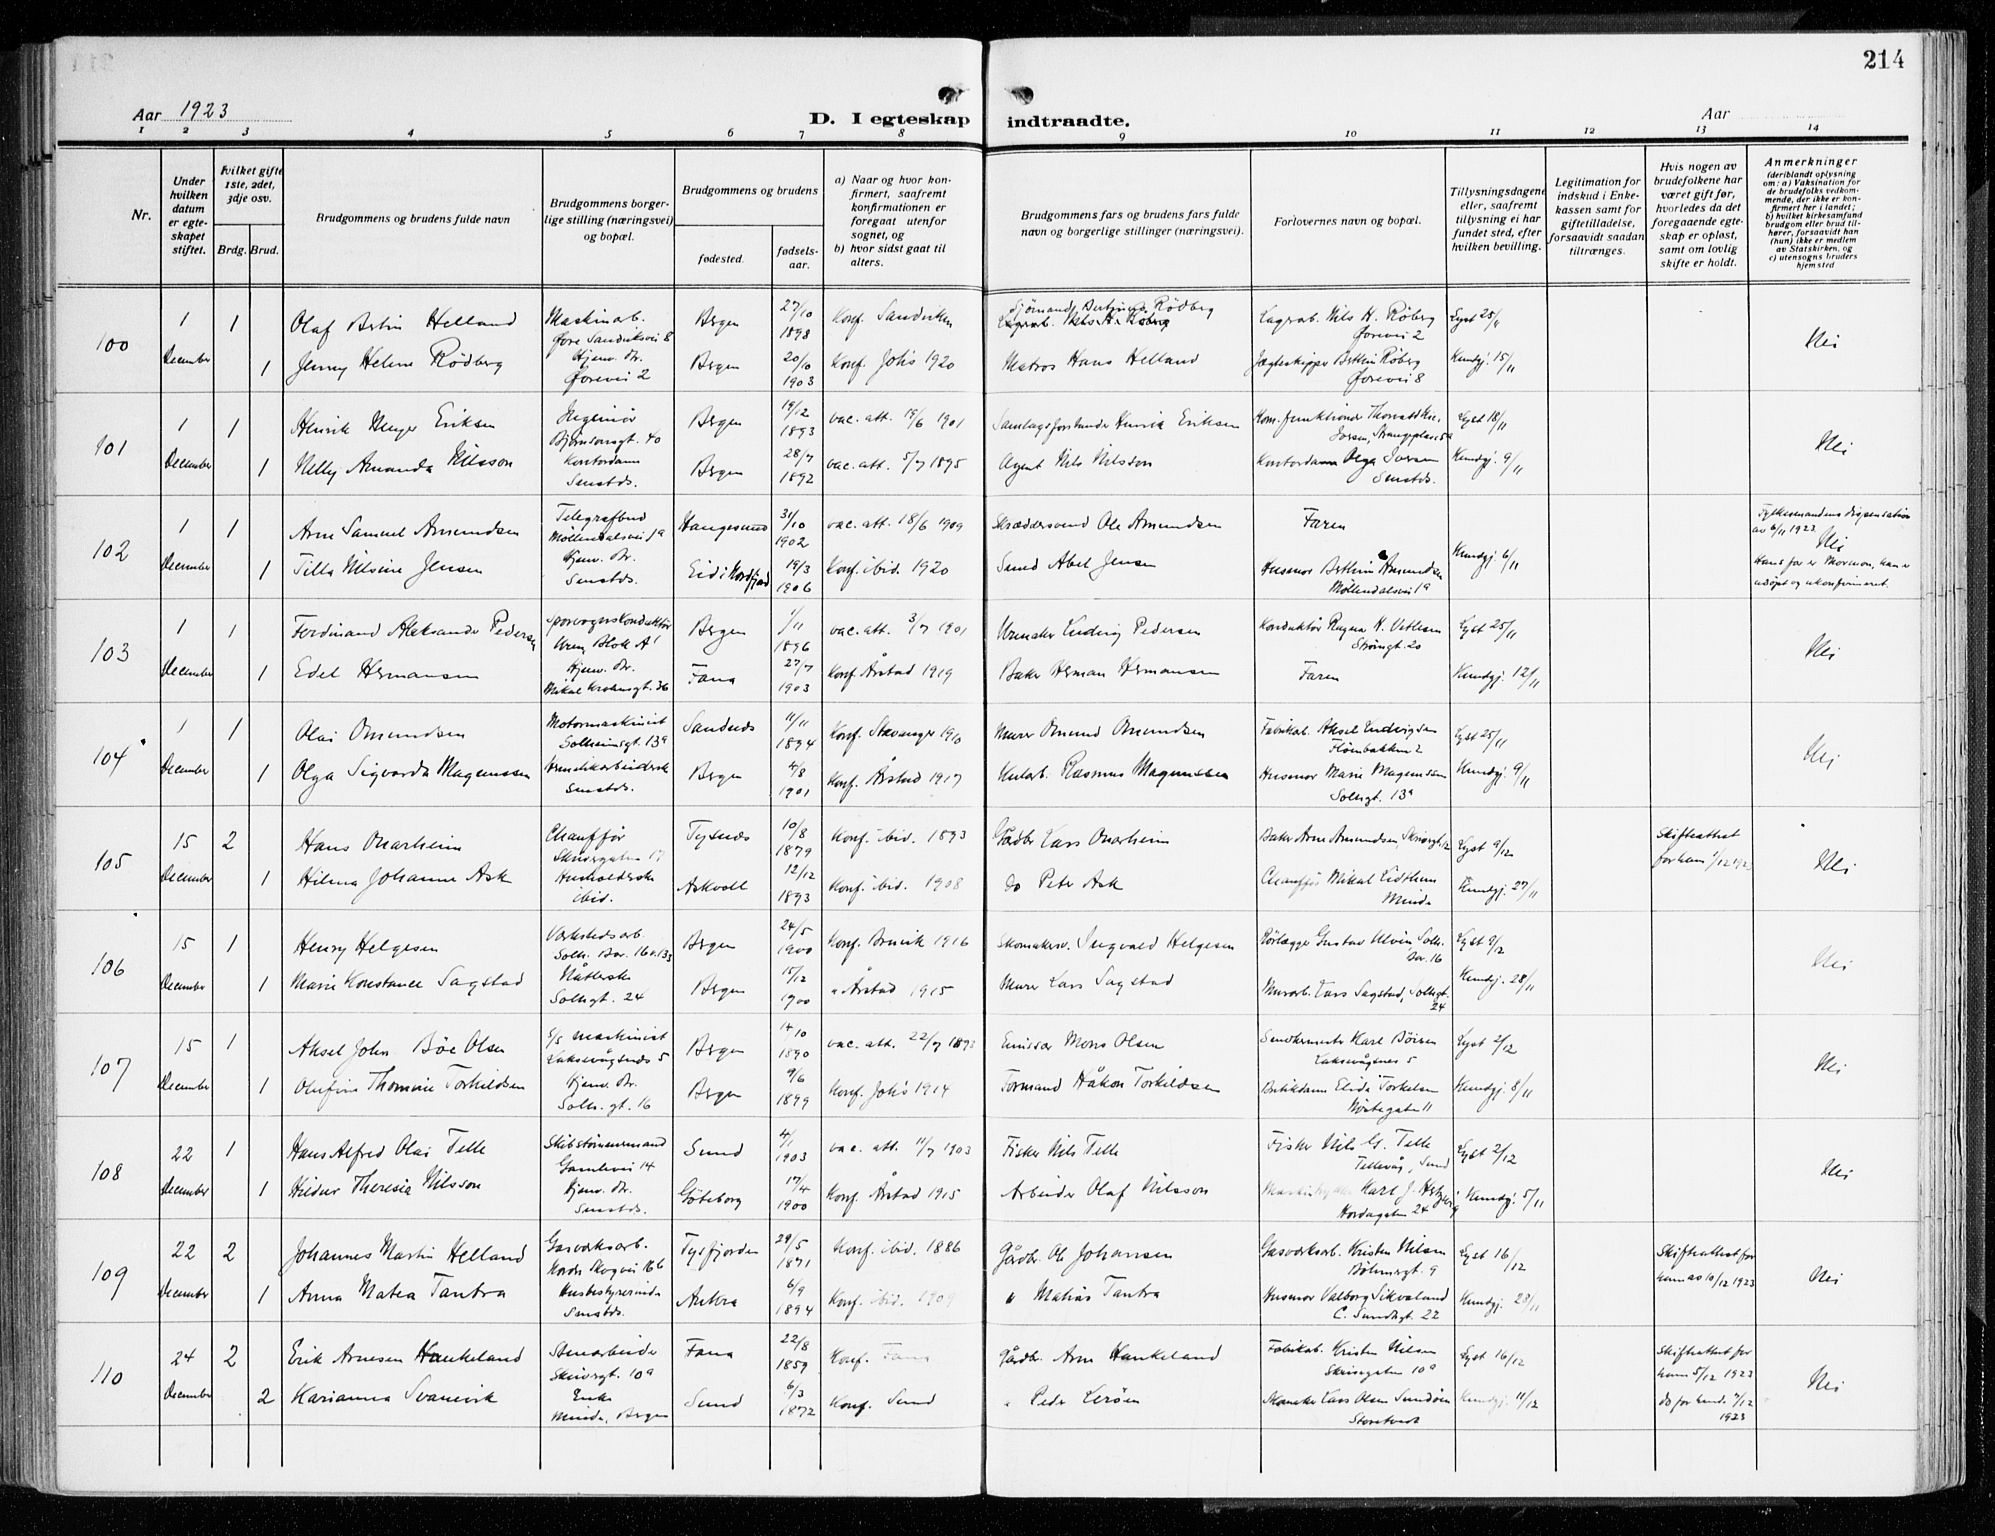 214
Aar 1923
D. I egteskap indtraadte.
Aar
1 2 3 4 5 6 7 8 9 10 11 12 13 14
Nr.
Under hvilken datum er egteskapet stiftet.
Hvilket gifte 1ste, 2det, 3dje osv.
Brdg. Brud.
Brudgommens og brudens fulde navn
Brudgommens borgerlige stilling (næringsvei) og bopæl.
Brudgommens og brudens
fødested.
fødselsaar.
a) Naar og hvor konfirmert, saafremt konfirmationen er foregaat utenfor sognet, og
b) hvor sidst gaat til alters.
Brudgommens fars og brudens fars fulde navn og borgerlige stillinger (næringsvei).
Forlovernes navn og bopæl.
Tillysningsdagene eller, saafremt tillysning ei har fundet sted, efter hvilken bevilling.
Legitimation for indskud i Enkekassen samt for giftetilladelse, forsaavidt saadan tiltrænges.
Hvis nogen av brudefolkene har været gift før, hvorledes da det foregaaende egteskap er opløst, samt om lovlig skifte er holdt.
Anmerkninger (deriblandt oplysning om: a) Vaksination for de brudefolks vedkommende, der ikke er konfirmert her i landet; b) hvilket kirkesamfund brudgom eller brud tilhører, forsaavidt han (hun) ikke er medlem av Statskirken, og c) utensogns bruders hjemsted
100 1 December 1 Olaf Bertin Helland Maskinarb. Øvre Sandviksvei 8 Bergen 27/10 1898 Konf. Sandviken Sjömand Bertinus Rödberg Lagerab. Nils H. Röberg Øvrevei 2 Lyst 25/11 Nei
1 Jenny Helene Rödberg Hjemv. Dr. Øvrevei 2 Bergen 20/10 1903 Konf. Johs 1920 Matros Hans Helland Jægteskipper Berthin Röberg Øvrevei 8 Kundgj. 15/11
101 1 December 1 Henrik Meyer Eriksen Ingeniör Bjørnsonsgt. 40 Bergen 19/12 1893 vac. att. 19/6 1901 Samlagsforstander Henrik Eriksen Lyst 18/11 Nei
1 Nelly Amanda Nilsson Kontordame Samstds. Bergen 28/7 1892 vac. att. 5/7 1895 Agent Nils Nilsson Kontordame Olga Samstds. Kundgj. 9/11
102 1 December 1 Arne Samuel Amundsen Telegrafbud Möllendalsvei 1a Haugesund 31/10 1902 vac. att. 18/6 1909 Skræddersvend Ole Amundsen Faren Fylkesmandens dispensation av 6/11 1923 Nei
1 Tilla Nilsine Jensen Hjemv. Dr. Samstds. Eid i Nordfjord 19/3 1906 Konf. ibid. 1920 Smed Abel Jensen Husmor Berthin Amundsen Möllendalsvei 1a Kundgj. 6/11 Hans far er Mormon, han er udøpt og ukonfirmeret.
103 1 December 1 Ferdinand Aleksander Pedersen Sporvognskonduktör Bergen 1/11 1896 vac. att. 3/7 1901 Urmaker Ludvig Pedersen Konduktör Ragnar K. Vetlesen Strömgt. 20 Lyst 25/11 Nei
1 Edel Hermansen Hjemv. Dr. Mikal Krohnsgt. 36 Fana 27/7 1903 Konf. Årstad 1919 Baker Herman Hermansen Faren Kundgj. 12/11
104 1 December 1 Olai Omundsen Motormaskinist Solheimsgt. 13a Sandnes 11/11 1894 Konf. Stavanger 1910 Murer Omund Omundsen Fabrikab. Aksel Ludvigsen Fløenbakken 2 Lyst 25/11 Nei
1 Olga Sigvarda Magnussen Samstds. Bergen 4/8 1901 Konf. Årstad 1917 Kularb. Rasmus Magnussen Husmor Marie Magnussen Solhgt. 13a Kundgj. 9/11
105 15 December 2 Hans Onarheim Chauffør Skivegaten 17 Tysnes 10/8 1879 Konf. ibid. 1893 Gårdbr. Lars Onarheim Baker Arne Amundsen, Skivegt. 12 Lyst 9/12 Skifteattest for ham 1/12 1923 Nei
1 Hilma Johanne Ask Husholderske ibid. Askvoll 12/12 1893 Konf. ibid. 1908 do Peter Ask Chauffør Mikal Minde Kundgj. 27/11
106 15 December 1 Henry Helgesen Værkstedsarb. Solh. Bergen 24/5 1900 Konf. Bruvik 1916 Skomakersv. Ingvald Helgesen Rørlægger Gustav Ulvin Solh. 16 Lyst 9/12 Nei
1 Marie Konstanse Sagstad Nåtlerske Solhgt. 24 Bergen 15/12 1900 " Årstad 1915 Murer Lars Sagstad Murarb. Lars Sagstad, Solhgt. 24 Kundgj. 28/11
107 15 December 1 Aksel John Bøe Olsen s/s maskinist Laksevågsnes 5 Bergen 14/10 1890 vac. att. 22/7 1893 Emissær Mons Olsen Karl Böirsen Laksevågsnes 5 Lyst 2/12 Nei
1 Olufine Thomine Torkildsen Hjemv. Dr. Solh. gt. 16 Bergen 9/6 1899 Konf. Johs 1914 Formand Håkon Torkildsen Butikdame Elida Torkelsen Nöstegaten 11 Kundgj. 8/11
108 22 December 1 Hans Alfred Olai Telle Skibstømmermand Gamlevei 14 Sund 4/1 1903 vac. att. 11/7 1903 Fisker Nils Telle Fisker Nils G. Telle Tellevåg, Sund Lyst 2/12 Nei
1 Hildur Theresia Nilsson Hjemv. Dr. Samstds. Göteborg 17/4 1900 Konf. Årstad 1915 Arbeider Olaf Nilsson Karl J. Nordagaten 24 Kundgj. 5/11
109 22 December 2 Johannes Martin Helland Gasværksarb. Nordre Skogvei 16b Tysfjorden 29/5 1871 Konf. ibid. 1886 Gårdbr. Ole Johansen Gasværksarb. Kristen Nilsen Böhmsgt. 9 Lyst 16/12 Skifteattest for ham av 10/12 1923 Nei
1 Anna Matea Tantra Husbestyrerinde Samstds. Aukra 6/9 1894 Konf. ibid. 1909 " Mathias Tantra Husmor Valborg Sikvaland C. Sundtsgt. 22 Kundgj. 28/11
110 24 December 2 Erik Arnesen Haukeland Stenarbeider Skivegt. 10a Fana 22/8 1859 Konf. Fana Gårdbr. Arne Haukeland Fabrikab. Kristen Nilsen Skivegaten 10a Lyst 16/12 Skifteattest for ham 5/12 1923 Nei
2 Karianna Svanevik Enke Minde, Bergen Sund 6/3 1872 Konf. Sund " Peder Leröen Skomaker Lars Olsen Sundöen Storetveit Kundgj. 11/12 do for hende 7/12 1923